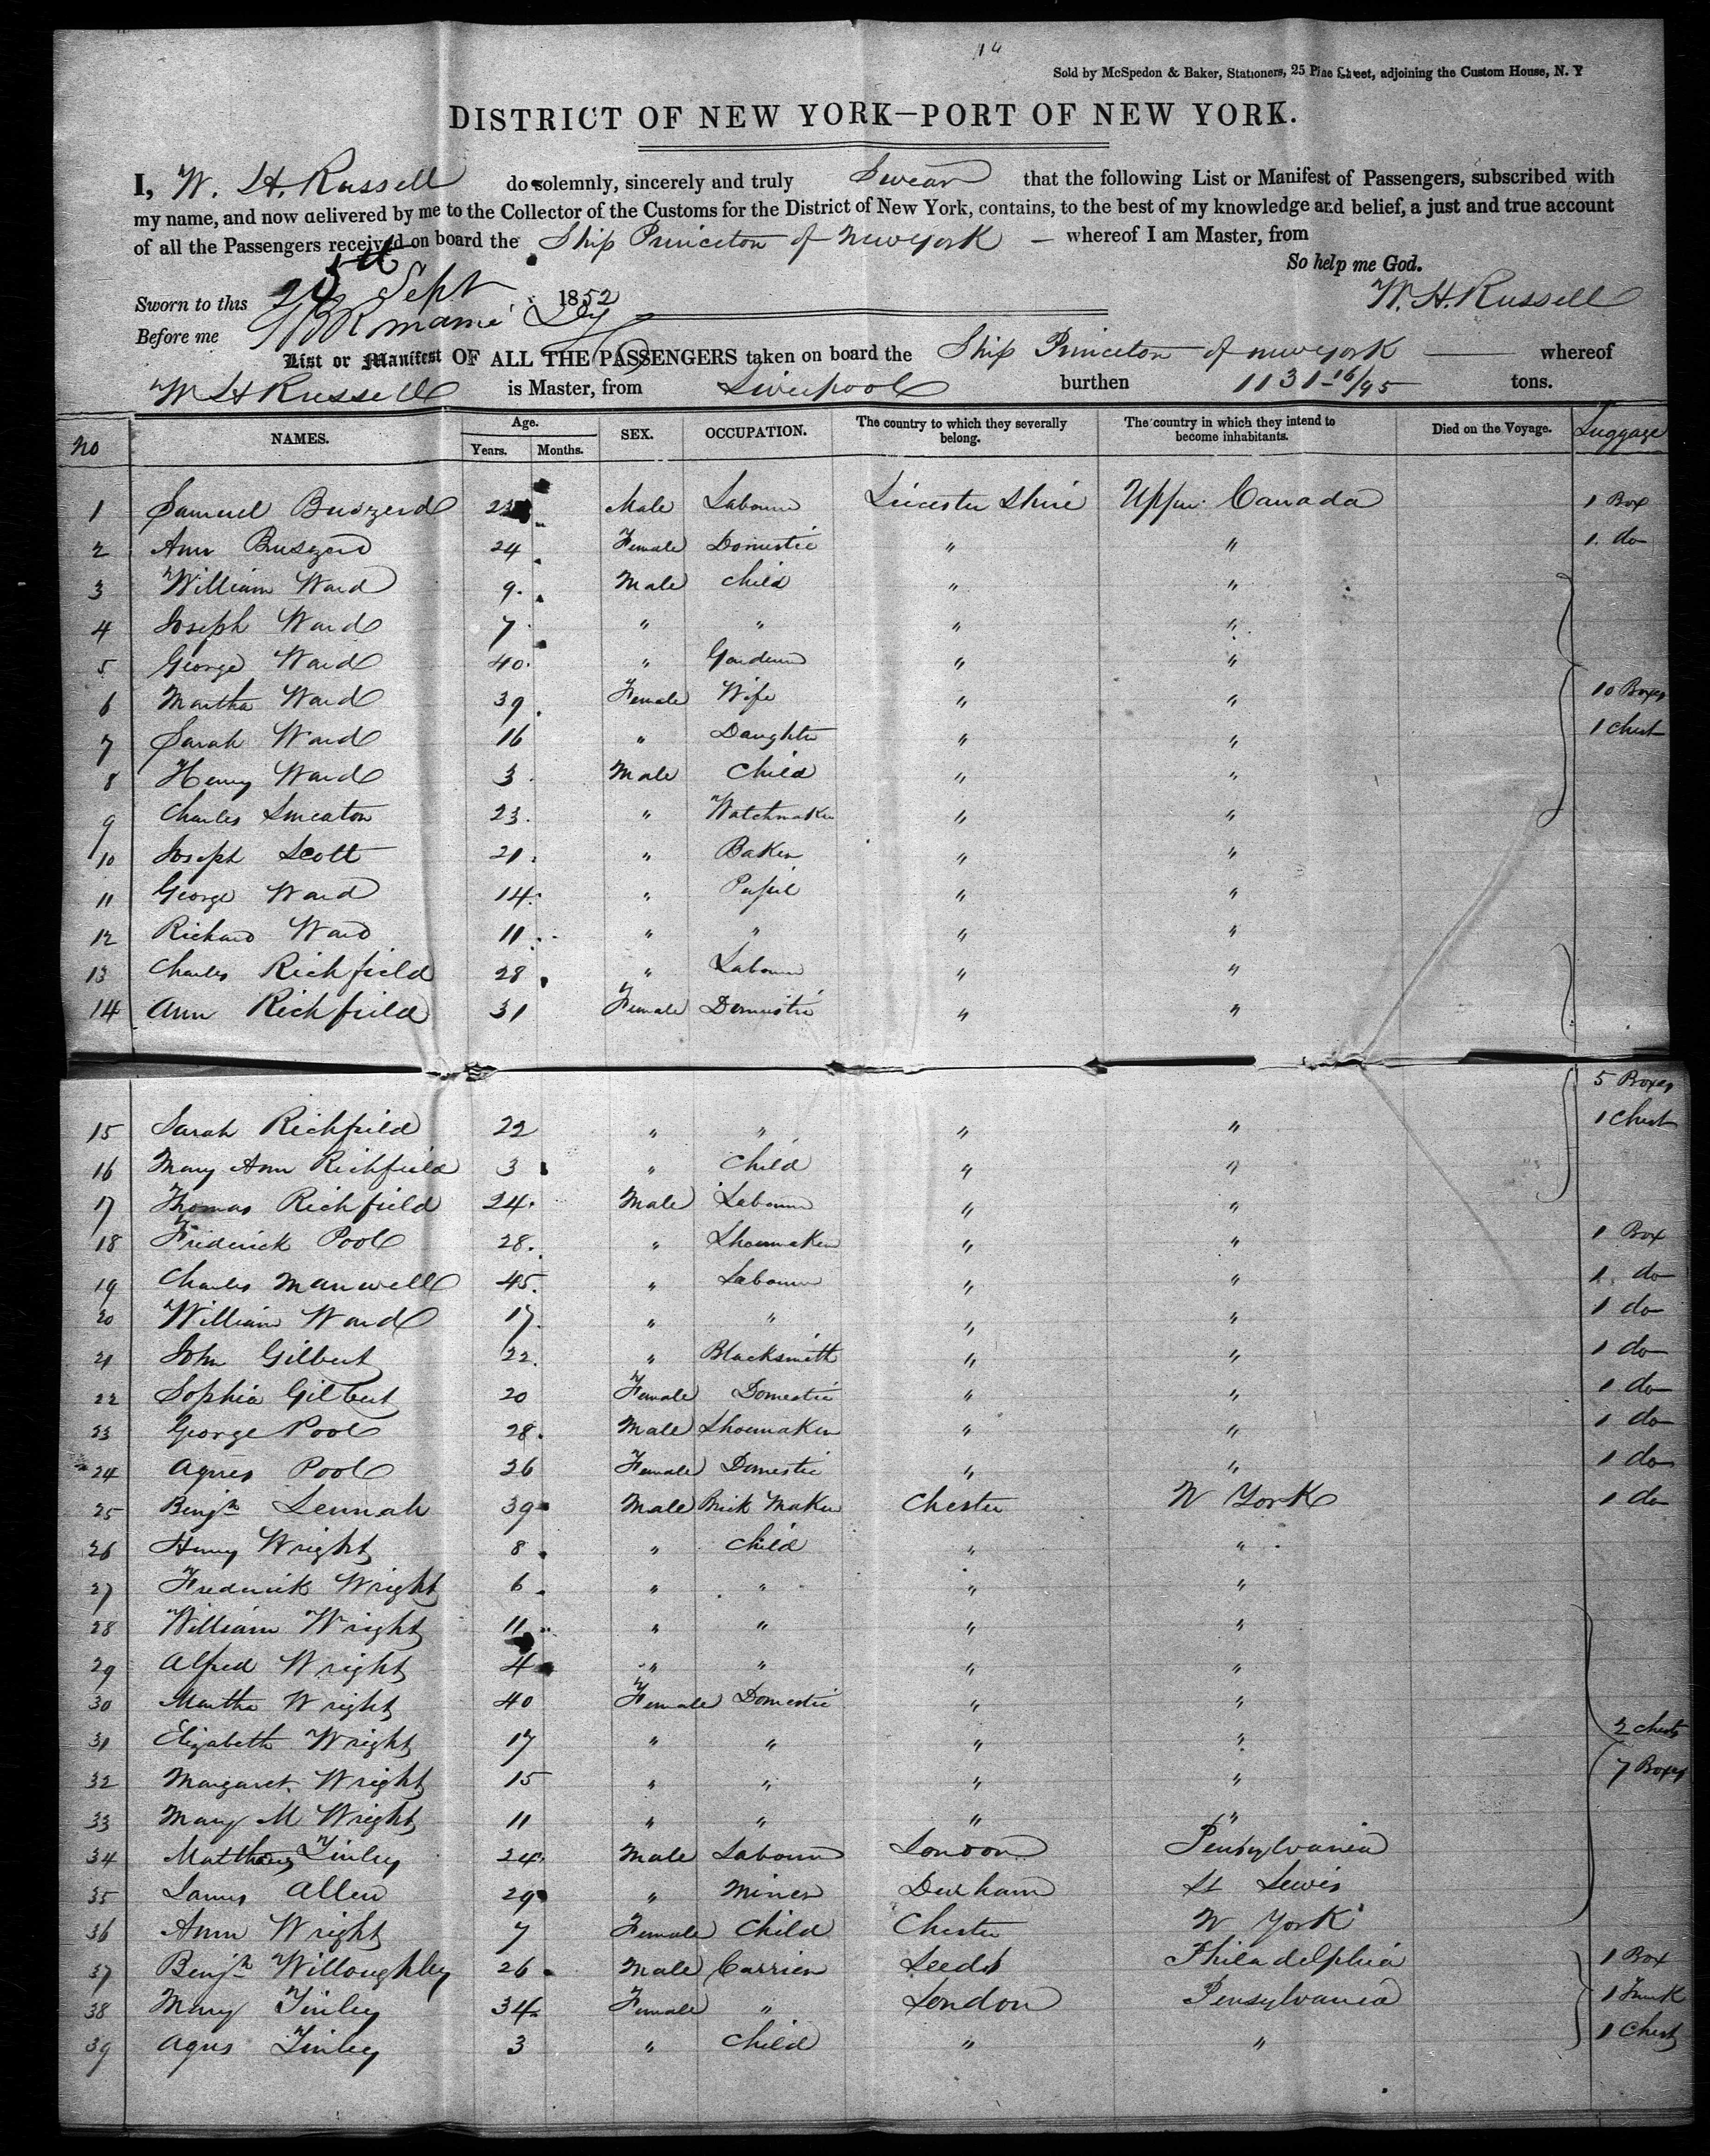 Sold by McSpedon & Baker, Stationers, 25 Pine Street, adjoining the Custom House, N. Y
DISTRICT OF NEW YORK—PORT OF NEW YORK.
I, W. H. Russell do solemnly, sincerely and truly Swear that the following List or Manifest of Passengers, subscribed with
my name, and now delivered by me to the Collector of the Customs for the District of New York, contains, to the best of my knowledge and belief, a just and true account
of all the Passengers received on board the Ship Princeton of New York — whereof I am Master, from
So help me God.
Sworn to this Sept 1852 W. H. Russell
Before me
List or Manifest OF ALL THE PASSENGERS taken on board the Ship Princeton of New York — whereof
W H Russell is Master, from Liverpool burthen 1131 16/95 tons.
No NAMES. Age. Years. Months. SEX. OCCUPATION. The country to which they severally belong. The country in which they intend to become inhabitants. Died on the Voyage. Luggage
1 Samuel Buszerd Male Labourer Leicester Shire Upper Canada 1 Box
2 Ann Buszerd 24 Female Domestic " " 1 do
3 William Ward 9 Male Child " "
4 Joseph Ward 7 " " " "
5 George Ward 40 " Gardener " "
6 Martha Ward 39 Female Wife " " 10 Boxes
7 Sarah Ward 16 " Daughter " " 1 Chest
8 Henry Ward 3 Male Child " "
9 Charles Smeaton 23 " Watchmaker " "
10 Joseph Scott 21 " Baker " "
11 George Ward 14 " Pupil " "
12 Richard Ward 11 " " " "
13 Charles Richfield 28 " Labourer " "
14 Ann Richfield 31 Female Domestic " "
5 Boxes
15 Sarah Richfield 22 " " " " 1 Chest
16 Mary Ann Richfield 3 " Child " "
17 Thomas Richfield 24 Male Labourer " "
18 Frederick Pool 28 " Shoemaker " " 1 Box
19 Charles Manwell 45 " Labourer " " 1 do
20 William Ward 17 " " " " 1 do
21 John Gilbert 22 " Blacksmith " " 1 do
22 Sophia Gilbert 20 Female Domestic " " 1 do
23 George Pool 28 Male Shoemaker " " 1 do
24 Agnes Pool 26 Female Domestic " " 1 do
25 Benjn Lennah 39 Male Brick Maker Chester N York 1 do
26 Henry Wright 8 " Child " "
27 Frederick Wright 6 " " " "
28 William Wright 11 " " " "
29 Alfred Wright 4 " " " "
30 Martha Wright 40 Female Domestic " "
31 Elizabeth Wright 17 " " " " 2 Chests
32 Margaret Wright 15 " " " " 7 Boxes
33 Mary M Wright 11 " " " "
34 Matthew Tinley 24 Male Labourer London Pensylvania
35 James Allen 29 " Miner Durham St Lewis
36 Ann Wright 7 Female Child Chester N York
37 Benjn Willoughby 26 Male Carrier Leeds Philadelphia 1 Box
38 Mary Tinley 34 Female " London Pensylvania 1 Trunk
39 Agnes Tinley 3 " Child " " 1 Chest